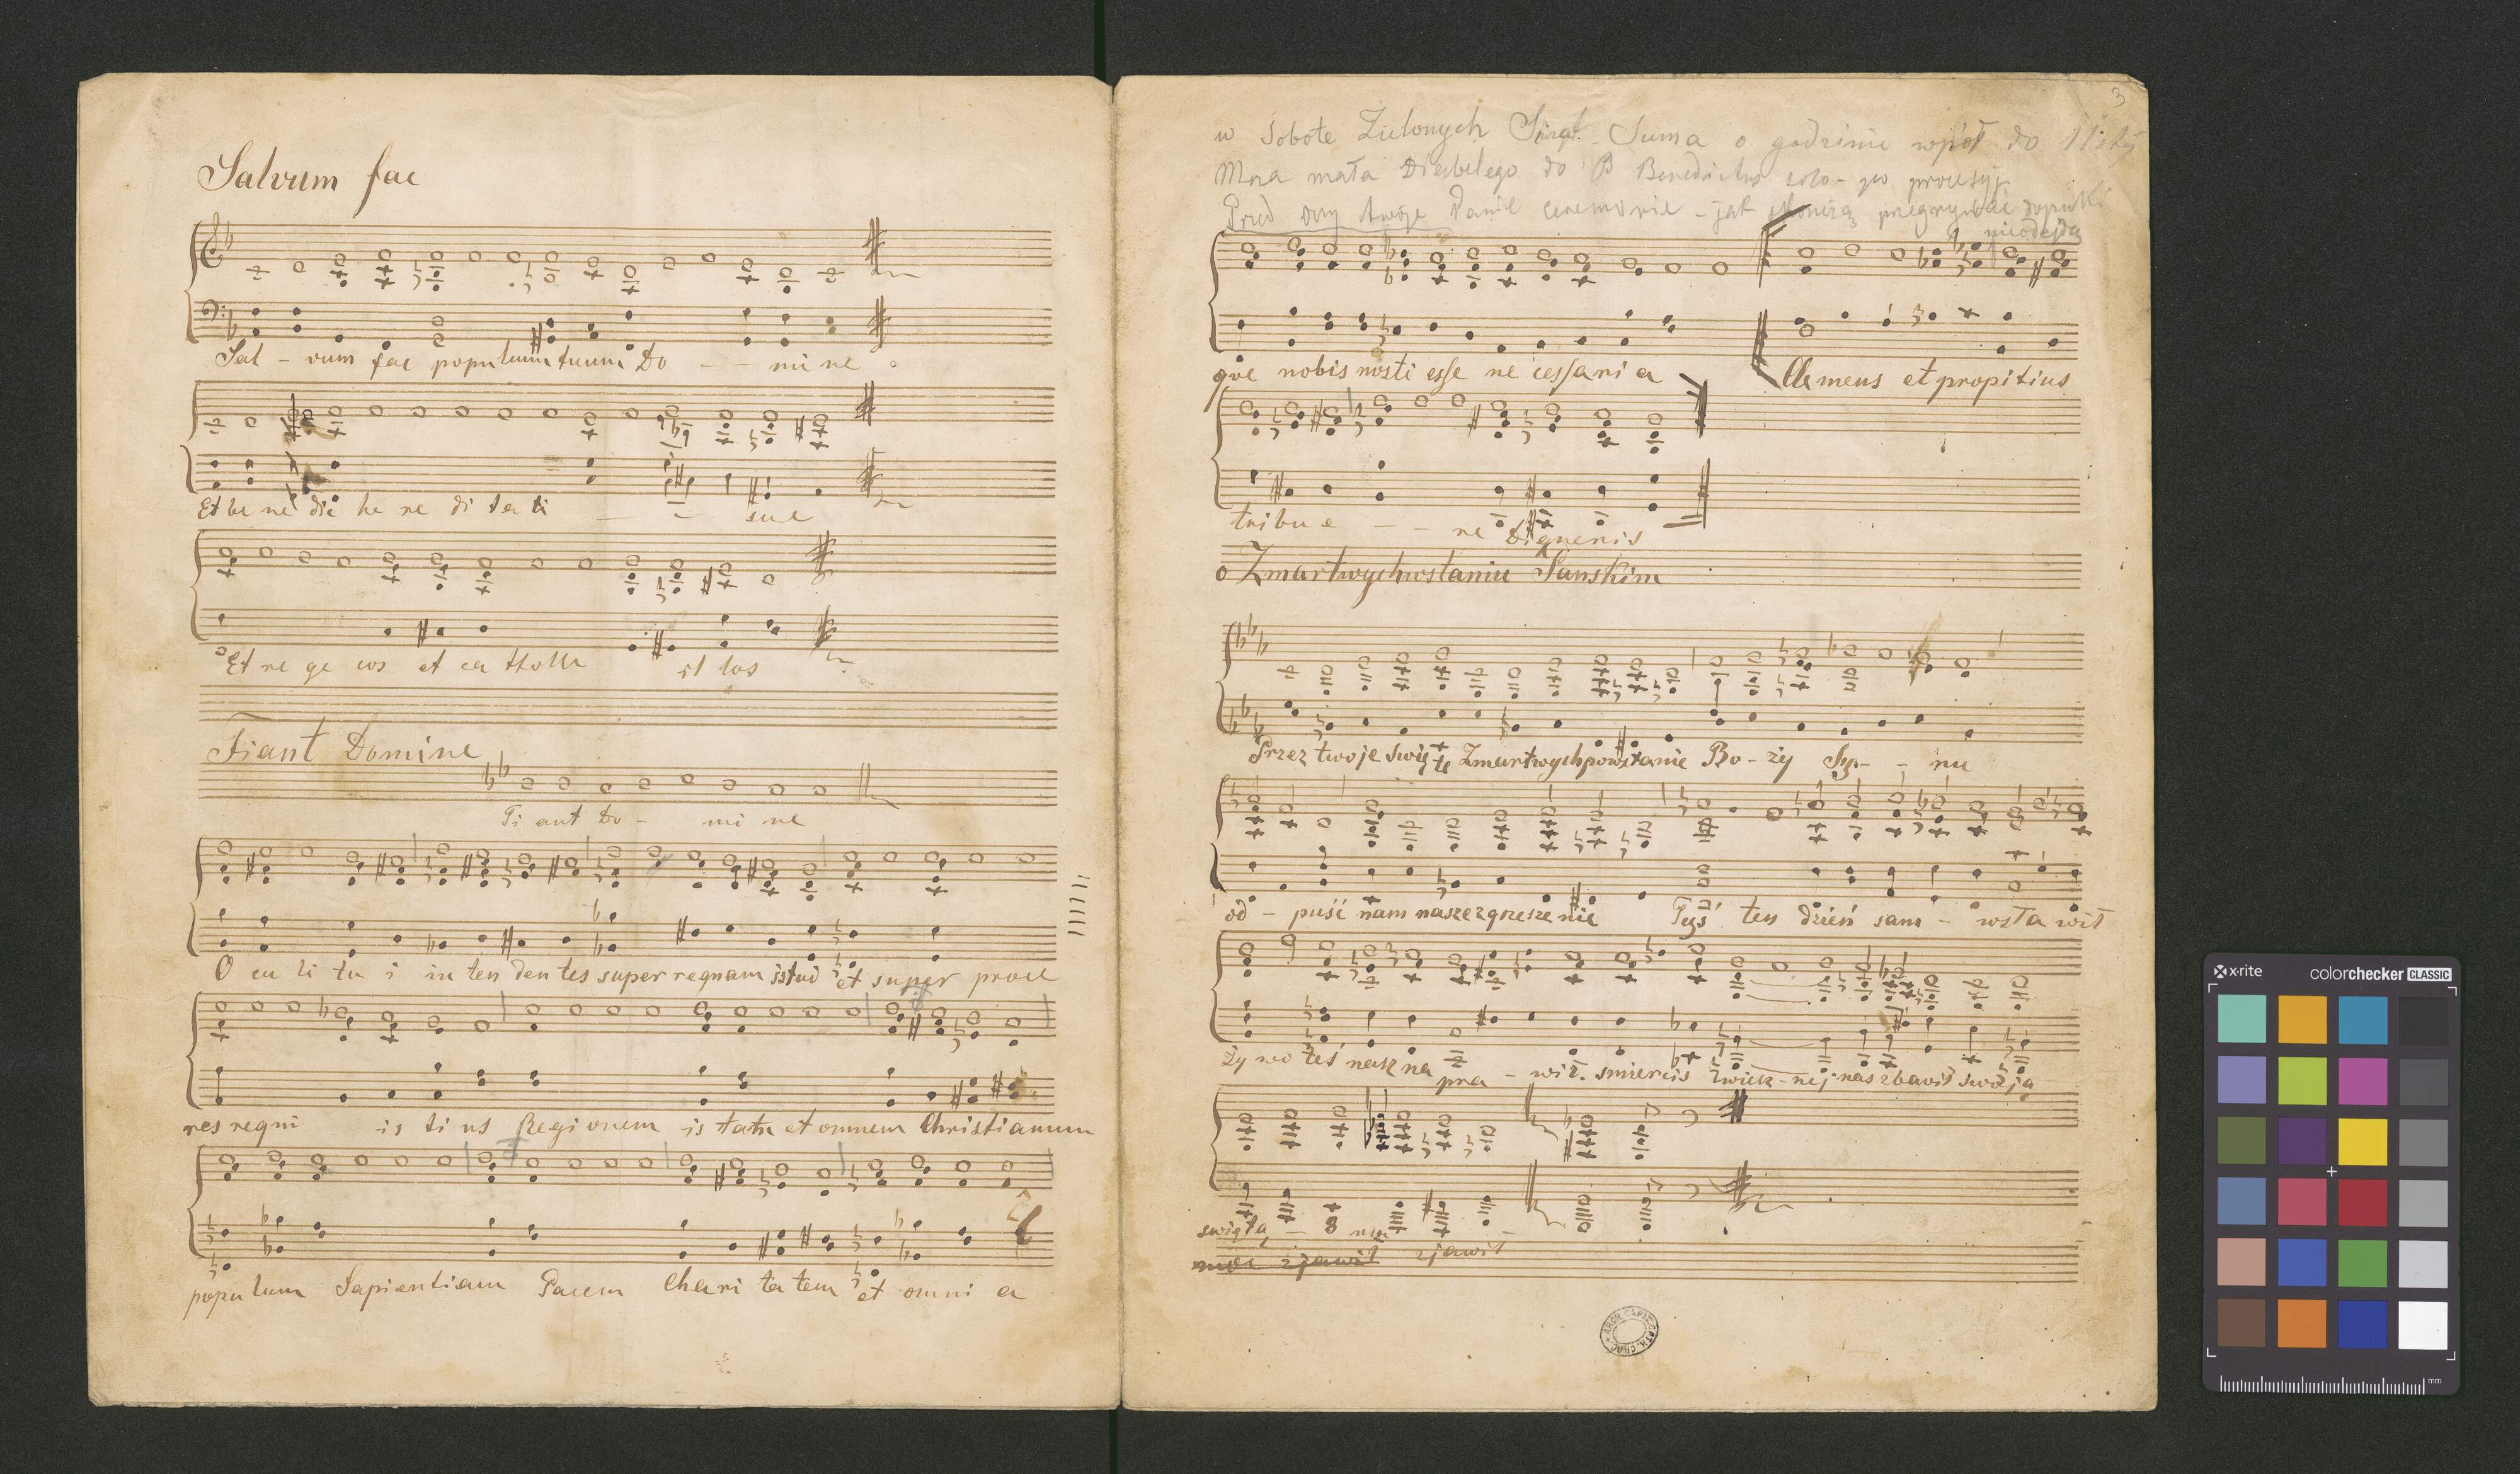 Salvum fac
Sal - vum fac populum tuum Do - - mi ne
Et be ne dic he re di ta ti - - sue
Et re ge eos et ex tolle il los
Fiant Domine
Fi ant Do - mi ne
O cu li tu i in ten den tes super regnam istud et super proce
res regni is ti us Regi onem is tam et omnem Christianum
popu lum Sapientiam Pacem Chari ta tem et omni a
3
w Sobote Zielonych Świąt. Suma o godzinie wpół do 11sty
Msza mała Diabelego do B Benedictus solo - po procesyj
Przed oczy twoje Panie ceremonie - jak skonczą przegrywac dopuki
nieodejdą
que nobis nosti esse ne cessari a Clemens et propitius
tribu e - - re Digneris
o Zmartwychwstaniu Panskim
Przez twoje Swię-te Zmartwychpowstanie Bo - zy Sy - - nu
od - puść nam nasze zgrzesze nie Tyś ten dzień sam - wsta wił
Zy wo teś nasz na pra - wił. smiercis zwiek - nej nas zbawił swoją
swiętą - 8 moc
moc zjawił zjawił
ARCH. CAPIT. CATH. CRAC.
x-rite colorchecker CLASSIC
mm